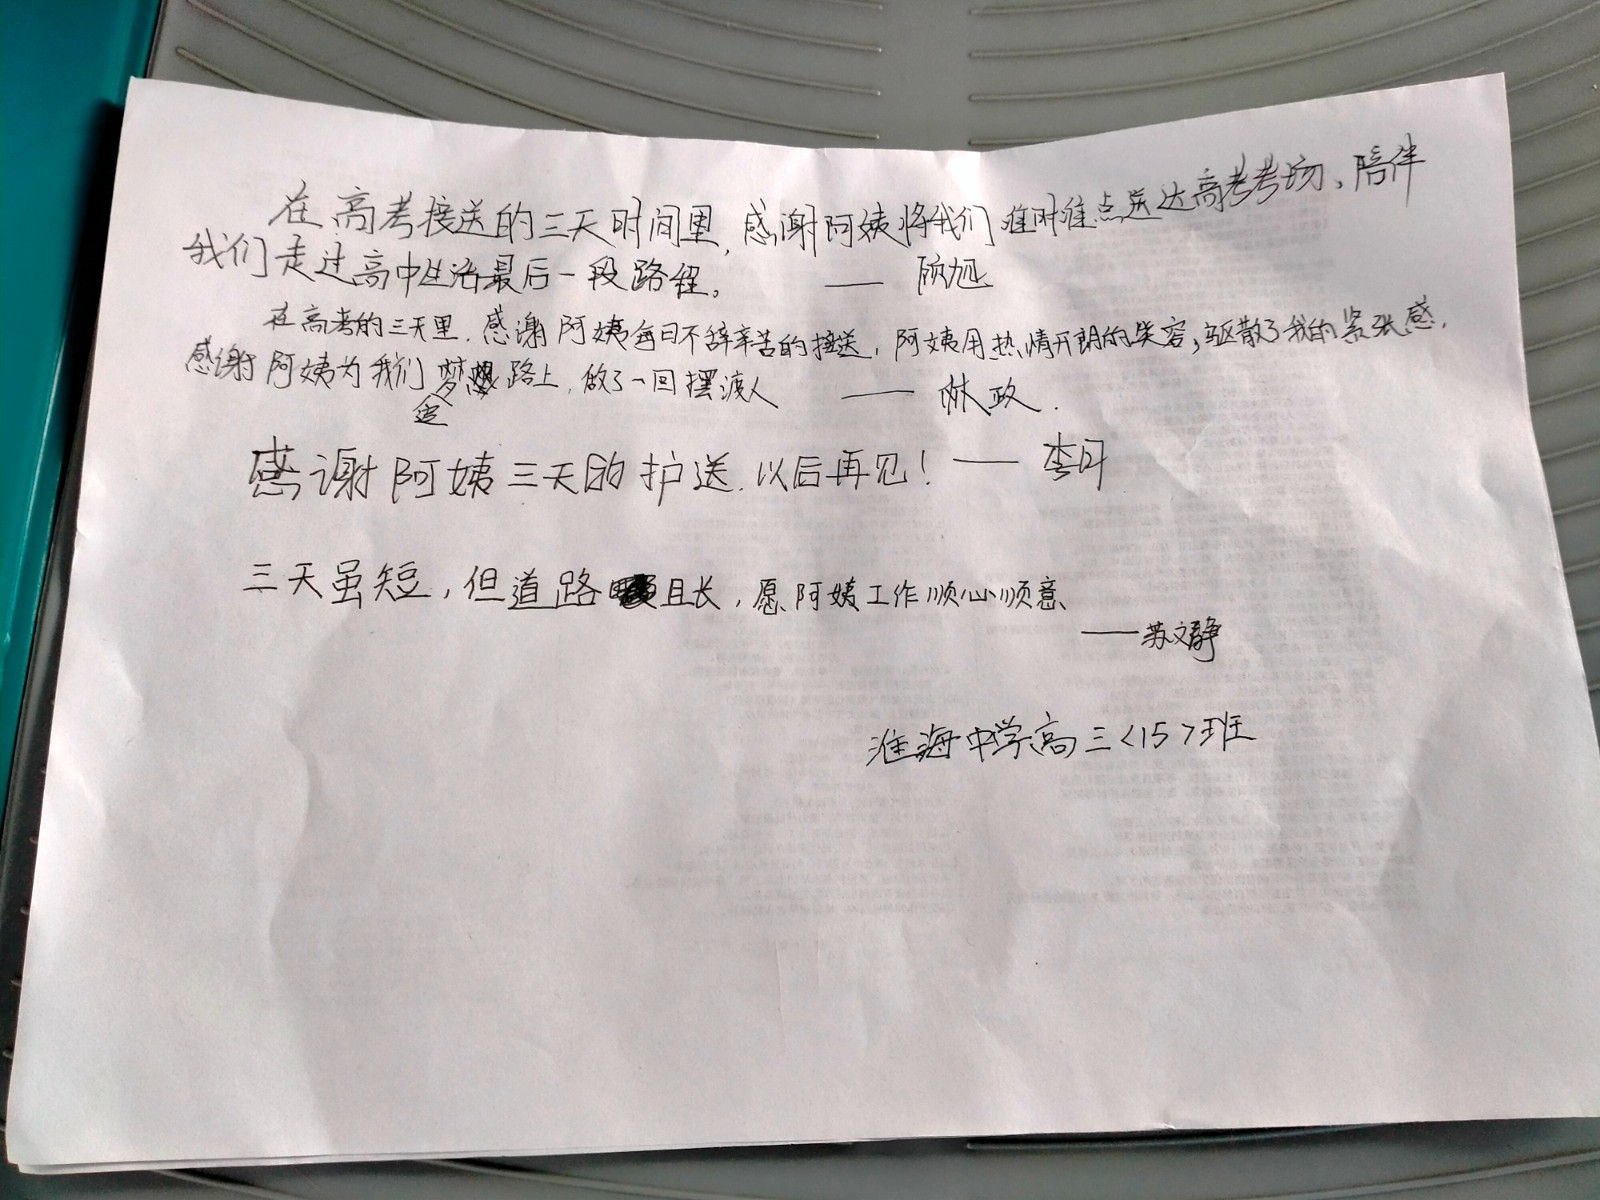 在高考接送的三天时间里,感谢阿姨将我们准时准点送达高考考场、陪伴
我们走过高中生活最后一段路程。 —— 顾旭
在高考的三天里,感谢阿姨每日不辞辛苦的接送,阿姨用热情开朗的笑容,驱散了我的紧张感,
感谢阿姨为我们梦想路上,做了一回摆渡人 —— 林政.
感谢阿姨三天的护送,以后再见! —— 李丹
三天虽短,但道路且长,愿阿姨工作顺心顺意
——苏文静
淮海中学高三<15>班